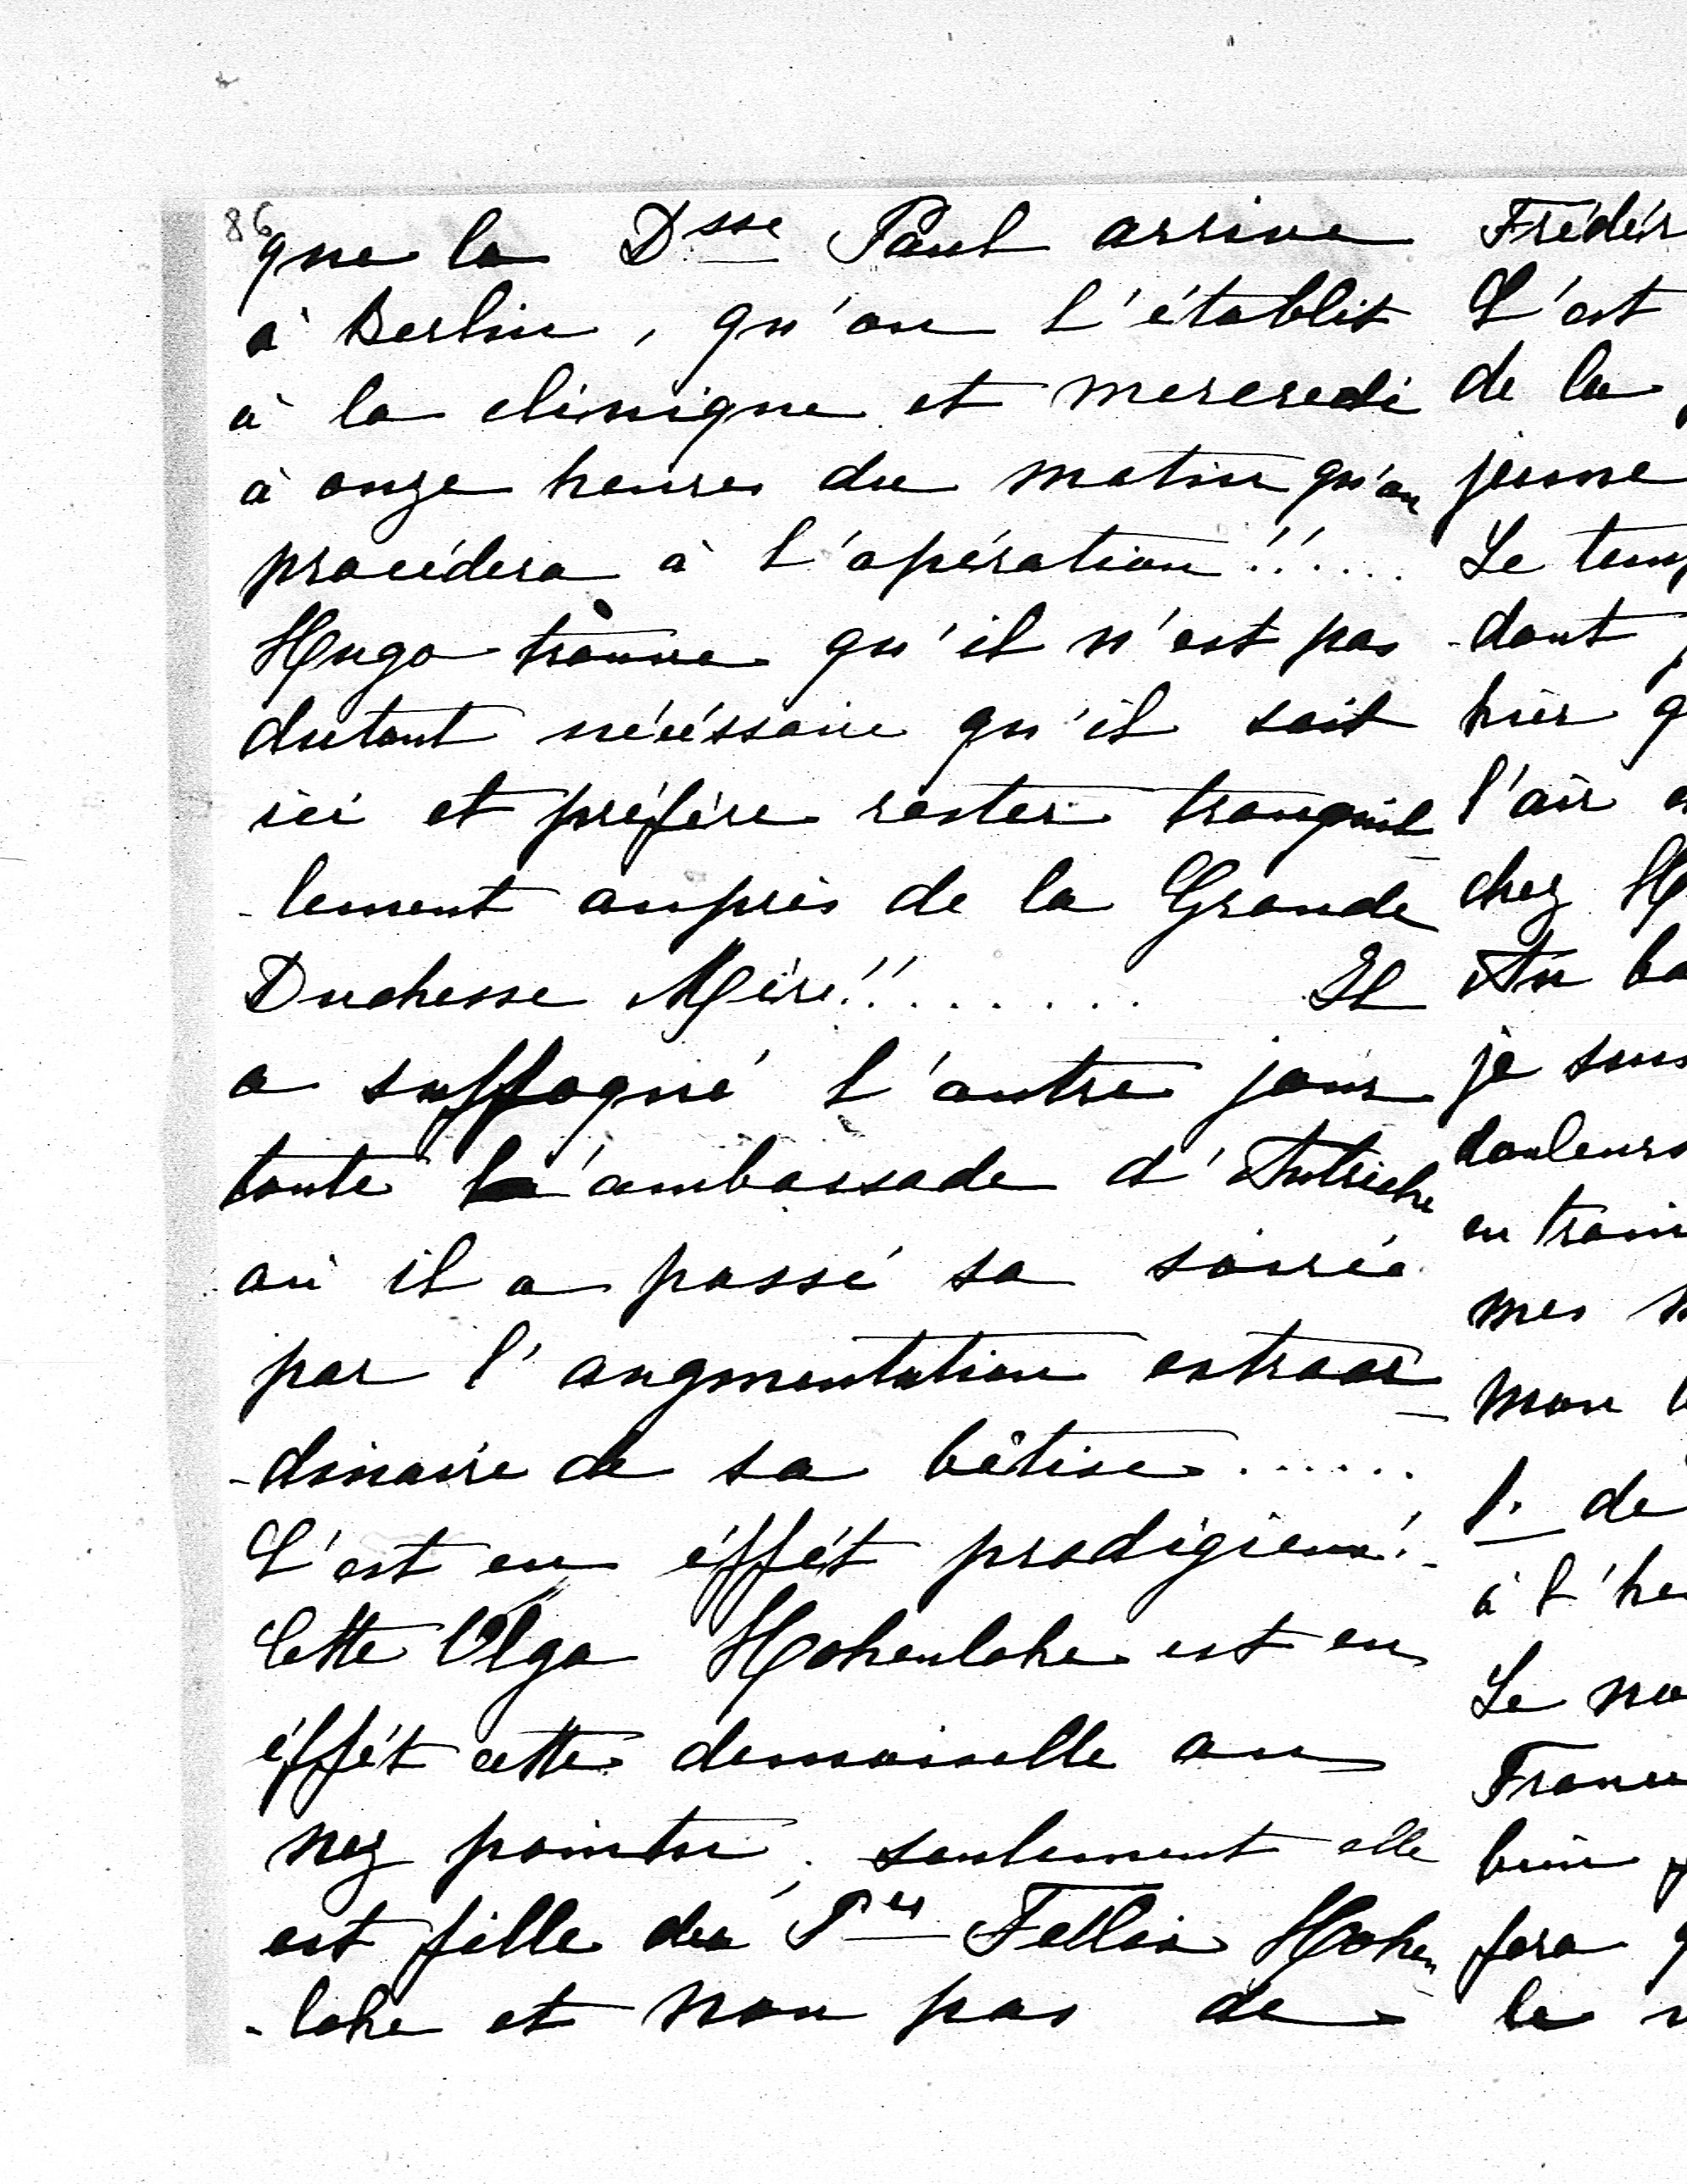 86
que la Dsse Paul arrive
à Berlin, qu'on l'établit
à la clinique et mercredi
à onze heures du matin qu'on
procédera à l'opération!!....
Hugo trouve qu'il n'est pas
dutout nécéssaire qu'il soit
ici et préfère rester tranquil
-lement auprès de la Grande
Duchesse Mère!!........ Il
a suffoqué l'autre jour
toute l'ambassade d'Autriche
où il a passé sa soirée
par l'augmentation extraor
-dinaire de sa bêtise......
C'est en éffét prodigieux!-
Cette Olga Hohenlohe est en
éffét cette demoiselle au
nez pointu, seulement elle
est fille du Pce Hohen
-lohe et non pas de
Frédér
C'est
de la
jeune
Le temp
dont
hier q
l'air
chez H
Au ba
je sous
douleurs
en train
mes
mon
de
à l'he
Le no
France
bien
fera q
le